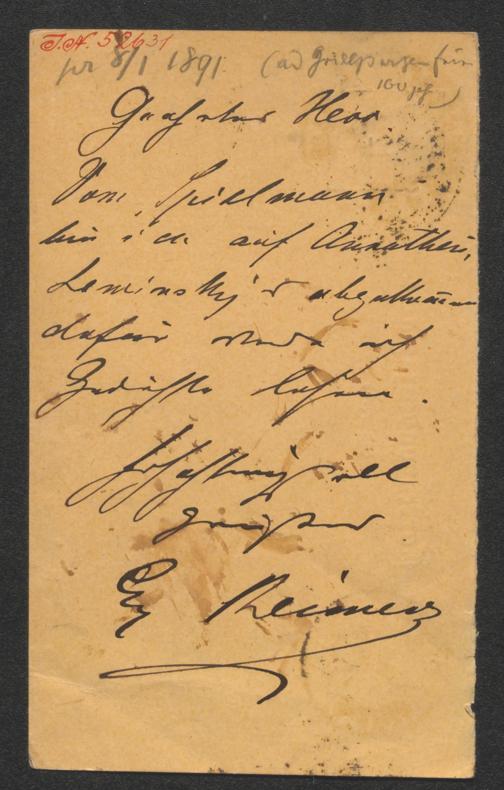 J.N. 52631
pr 8/1 1891 (ad Grillparzerfeier
100 
Geehrter Herr
Vom Spielmann
bin ich auf Anrathen
Leminsky's abgekommen
dafür werde ich
Gedichte lesen.
Hochachtungsvoll
grüßend
Reimers